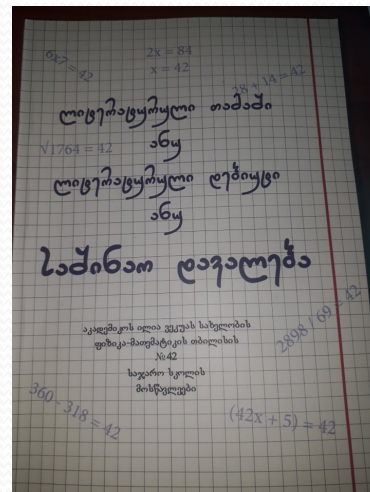 6x7 = 42
2x = 84
x = 42
28 + 14 = 42
ლიტერატურული თამაში
√1764 = 42
ანუ
ლიტერატურული დებიუტი
ანუ
საშინაო დავალება
აკადემიკოს ილია ვეკუას სახელობის
ფიზიკა-მათემატიკის თბილისის
№42
საჯარო სკოლის
მოსწავლეები
2898 / 69 = 42
360 - 318 = 42
(42x + 5) = 42